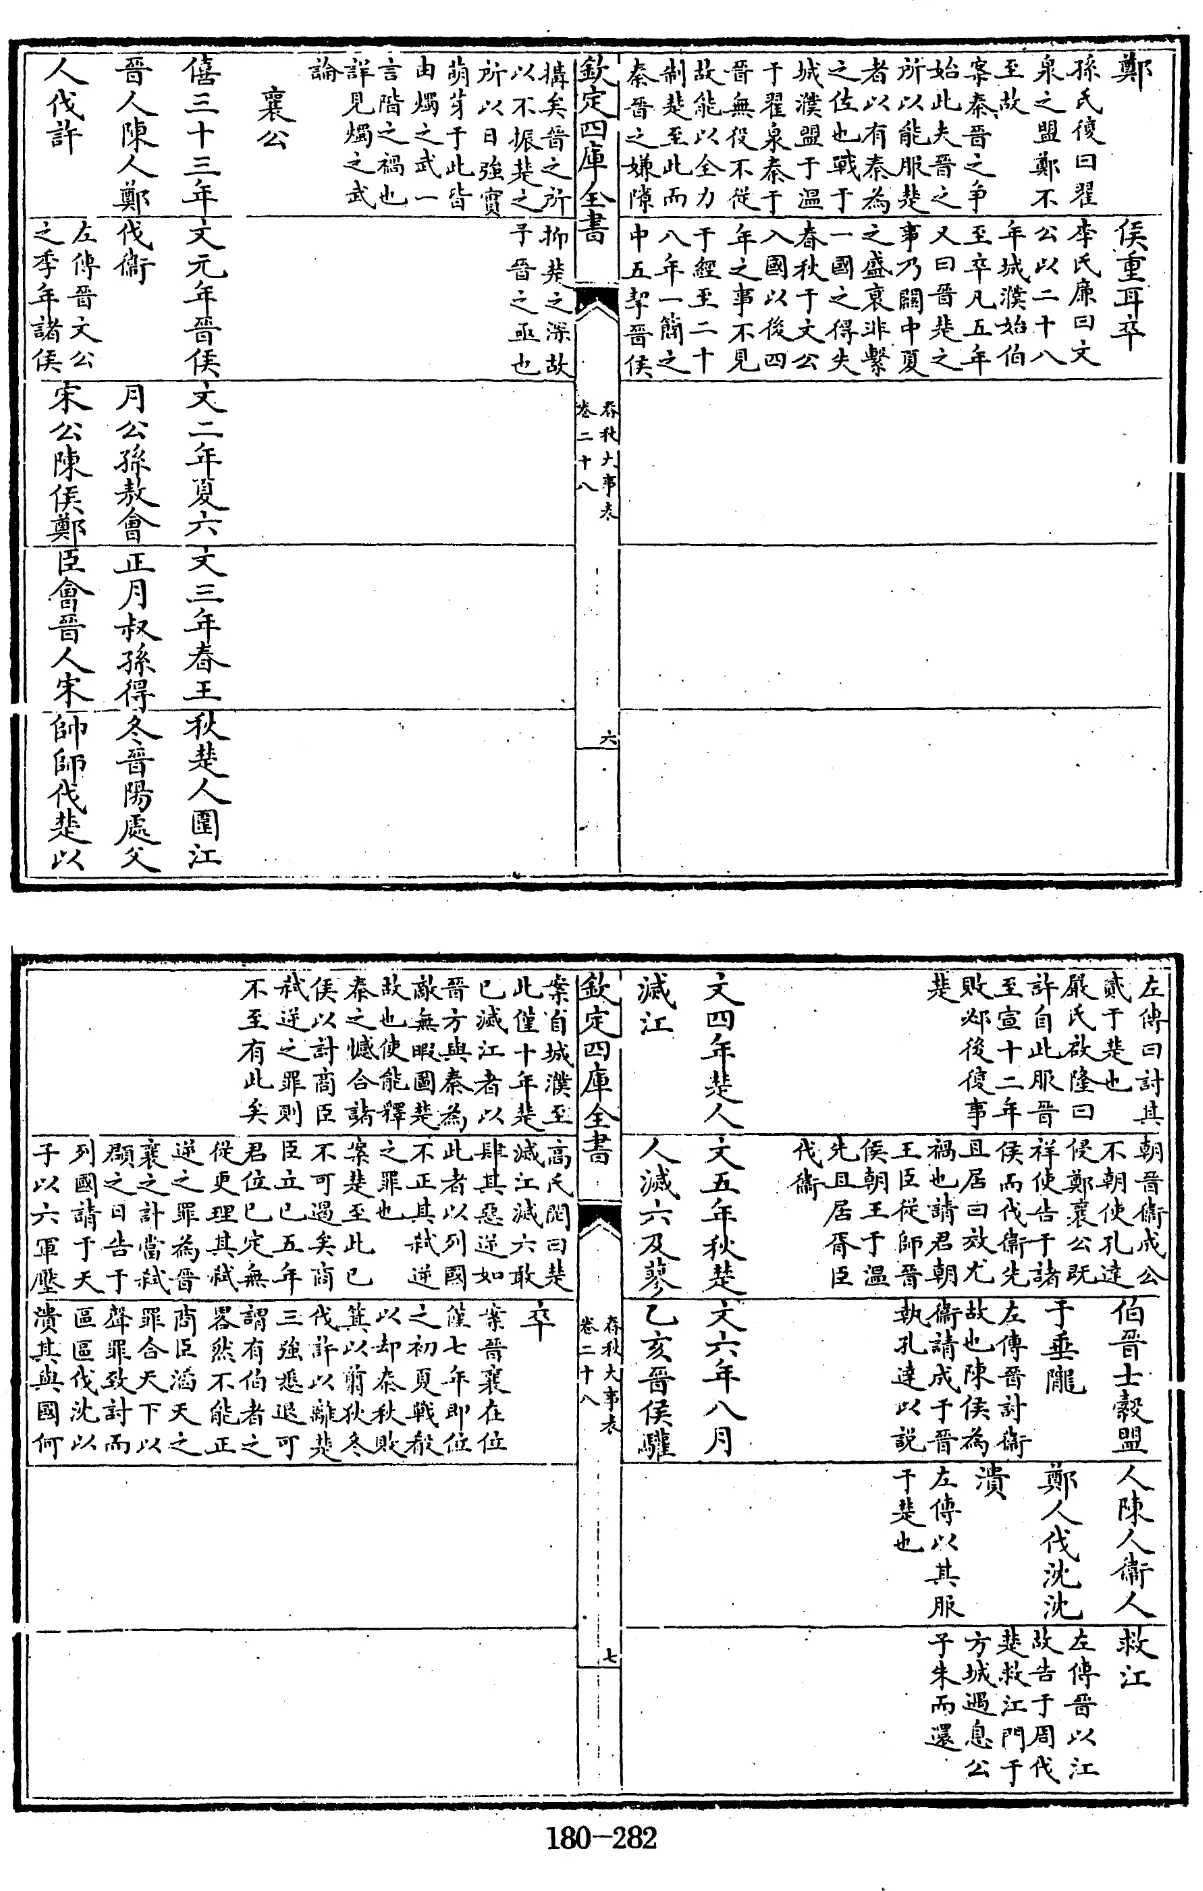 鄭
孫氏復曰翟
泉之盟鄭不
至故
案秦晉之爭
始此夫晉之
所以能服楚
者以有秦為
之佐也戰于
城濮盟于溫
于翟泉秦于
晉無役不從
故能以全力
制楚至此而
秦晉之嫌隙
侯重耳卒
李氏廉曰文
公以二十八
年城濮始伯
至卒凡五年
又曰晉楚之
事乃關中夏
之盛衰非繫
一國之得失
春秋于文公
入國以後四
年之事不見
于經至二十
八年一簡之
中五挈晉侯
欽定四庫全書
春秋大事表
卷二十八
六
搆矣晉之所
以不振楚之
所以日強實
萌芽于此皆
由燭之武一
言階之禍也
詳見燭之武
論
襄公
僖三十三年
晉人陳人鄭
人伐許
抑楚之深故
予晉之亟也
文元年晉侯
伐衞
左傳晉文公
之季年諸侯
文二年夏六
月公孫敖會
宋公陳侯鄭
文三年春王
正月叔孫得
臣會晉人宋
秋楚人圍江
冬晉陽處父
帥師伐楚以
左傳曰討其
貳于楚也
嚴氏啟隆曰
許自此服晉
至宣十二年
敗邲後復事
楚
文四年楚人
滅江
朝晉衞成公
不朝使孔達
侵鄭襄公既
祥使告于諸
侯而伐衞先
且居曰效尤
禍也請君朝
王臣從師晉
侯朝王于溫
先且居胥臣
伐衞
文五年秋楚
人滅六及蓼
伯晉士縠盟
于垂隴
左傳晉討衞
故也陳侯為
衞請成于晉
執孔達以説
文六年八月
乙亥晉侯驩
人陳人衞人
鄭人伐沈沈
潰
左傳以其服
于楚也
救江
左傳晉以江
故告于周伐
楚救江門于
方城遇息公
子朱而還
欽定四庫全書
春秋大事表
卷二十八
七
案自城濮至
此僅十年楚
已滅江者以
晉方與秦為
敵無暇圖楚
故也使能釋
秦之憾合諸
侯以討商臣
弒逆之罪則
不至有此矣
高氏閌曰楚
滅江滅六敢
肆其惡逆如
此者以列國
不正其弒逆
之罪也
案楚至此已
不可遏矣商
臣立已五年
君位已定無
從更理其弒
逆之罪為晉
襄之計當弒
頵之日告于
列國請于天
子以六軍壓
卒
案晉襄在位
僅七年即位
之初夏戰殽
以却秦秋敗
箕以翦狄冬
伐許以離楚
三強懲退可
謂有伯者之
畧然不能正
商臣滔天之
罪合天下以
聲罪致討而
區區伐沈以
潰其與國何
180-282